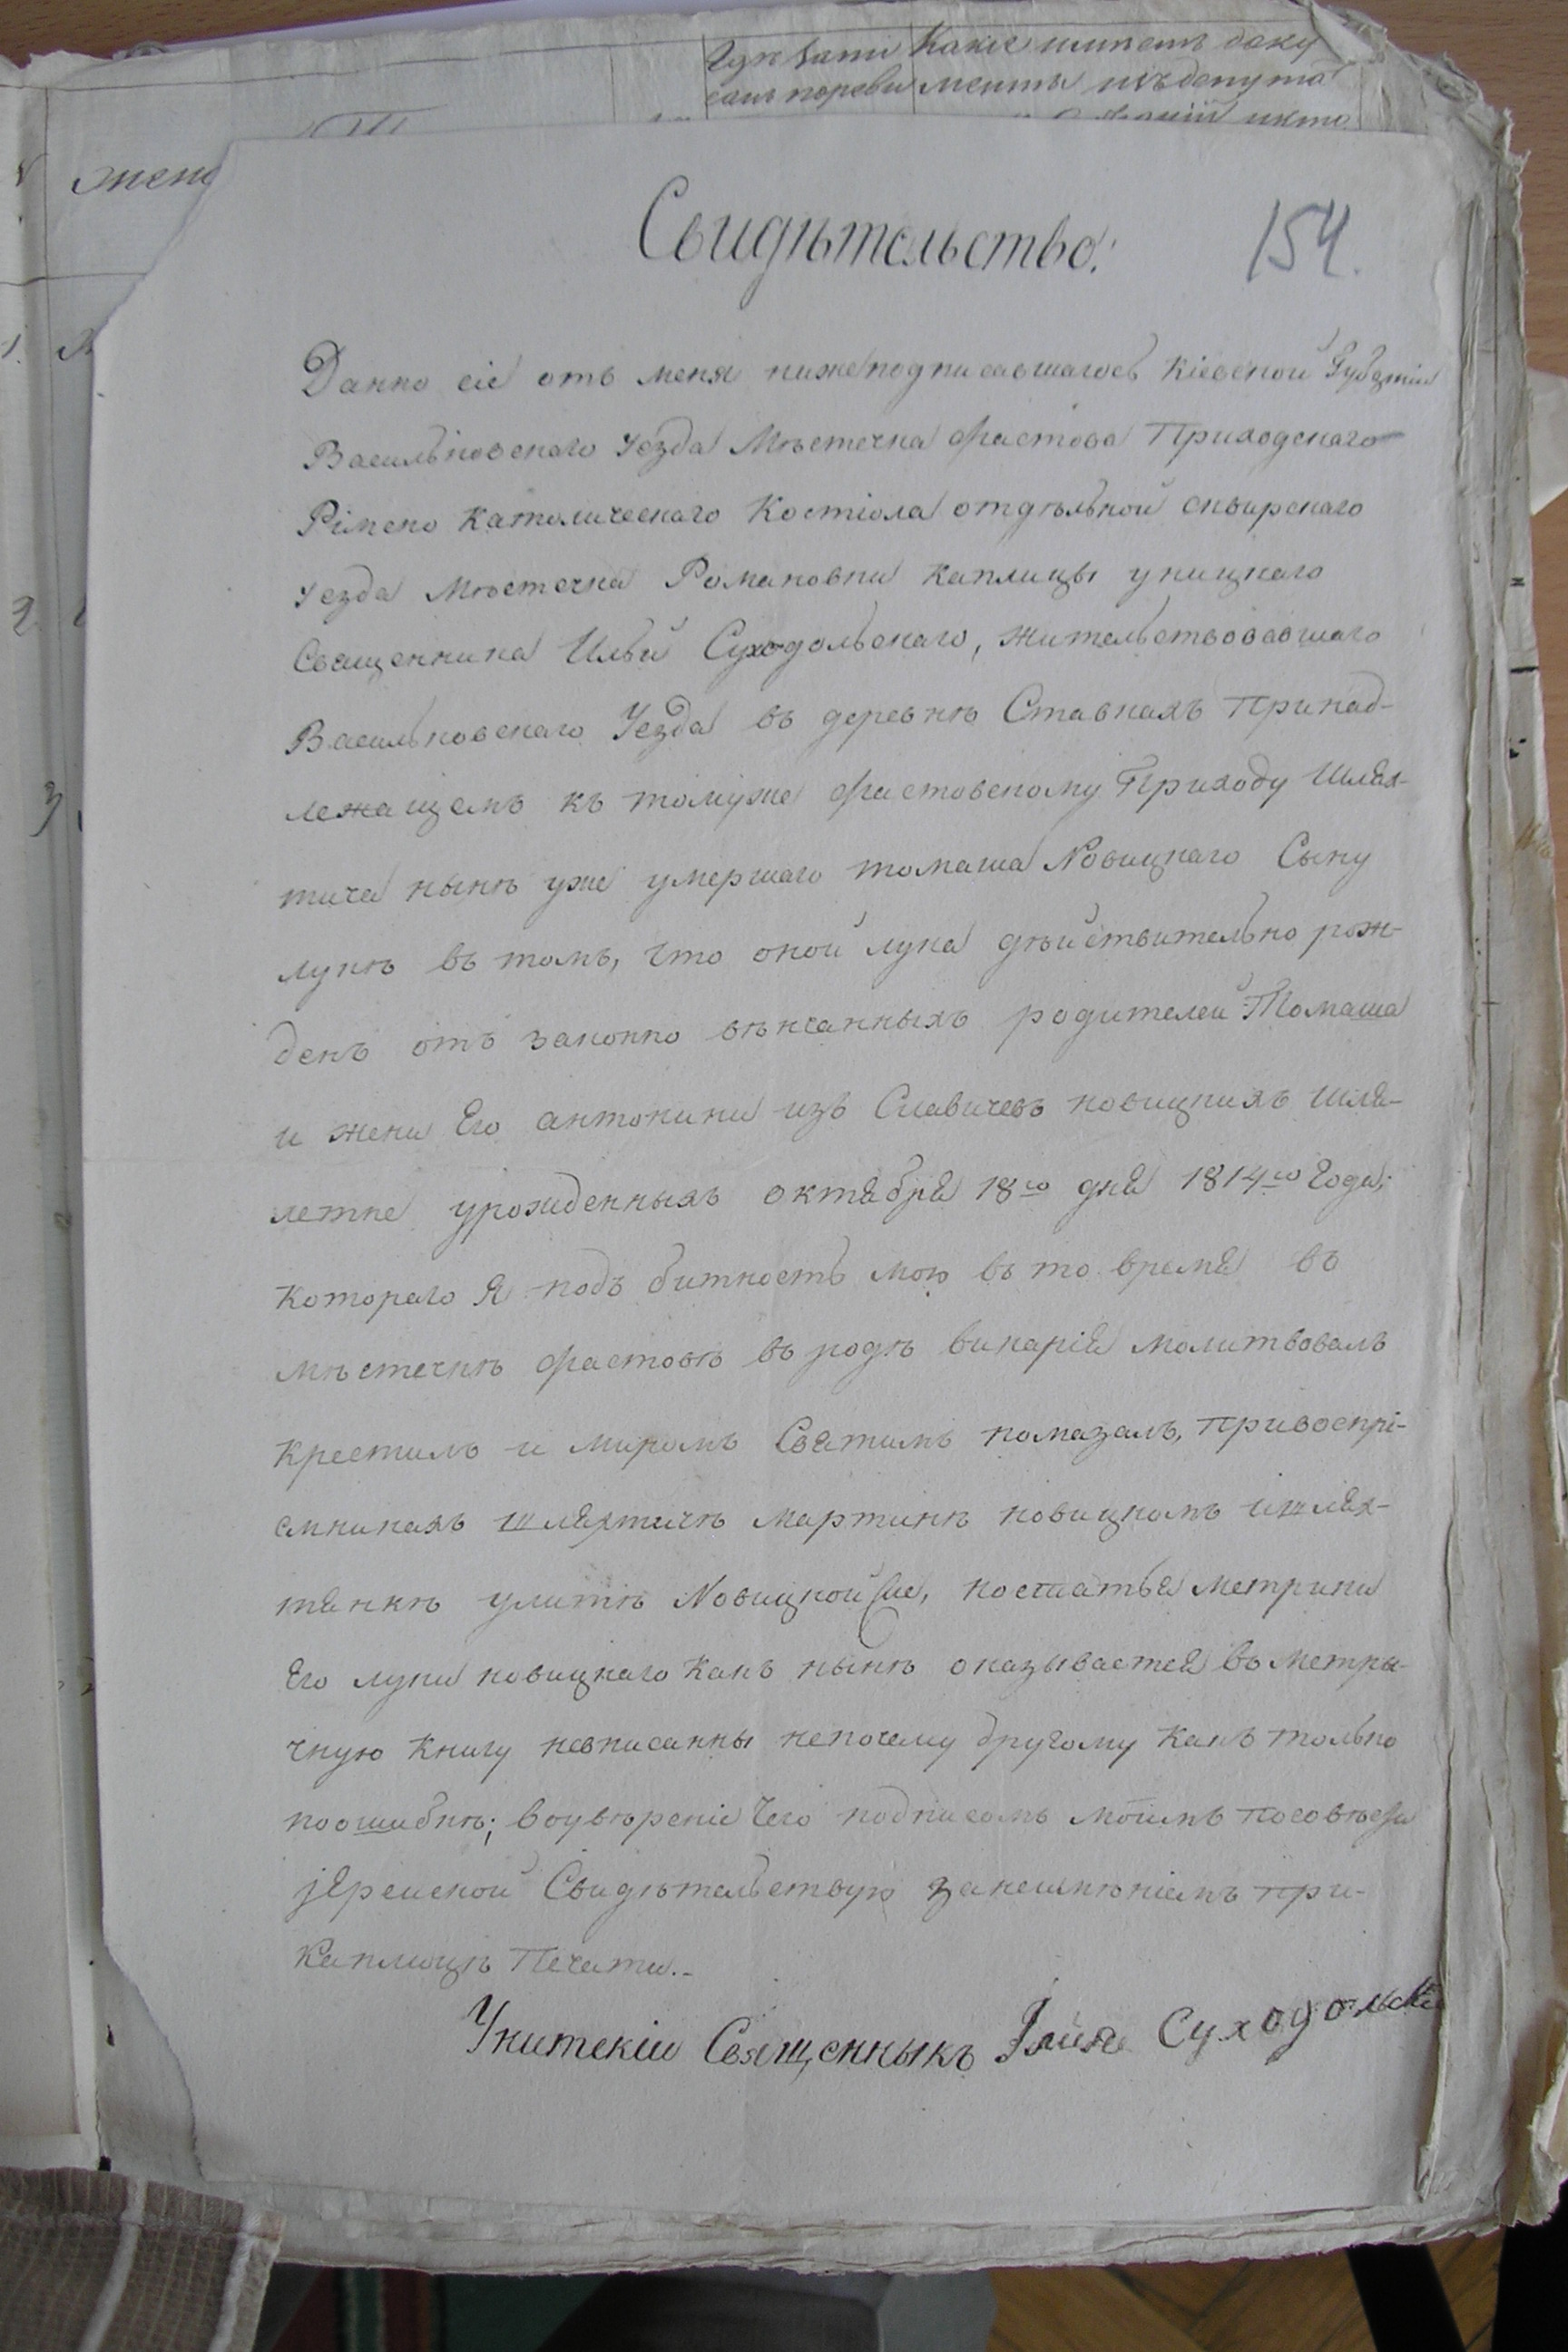 какіе имѣетъ доку
менты изъ депута
жени
Свидѣтельство:
154.
Данно сіе отъ меня нижеподписавшагось Кіевской Губерніи
Васильковскаго Уезда Мѣстечка Фастова Приходскаго
Рімско Католическаго Костіола отдѣльной сквирскаго
уезда Мѣстечка Романовки Каплицы уницкаго
Священника Ильи Суходольскаго, жительствовавшаго
Васильковскаго Уезда въ деревнѣ Ставкахъ принад-
лежащемъ къ томуже фастовскому Приходу Шлях-
тича нынѣ уже умершаго томаша Новицкаго Сыну
лукѣ въ томъ, что оной лука дѣйствительно рож-
денъ отъ законно вѣнчанныхъ родителей Томаша
и жени Его антонини изъ Славичевъ новицкихъ шля-
летне урожденныхъ октября 18го дня 1814го Года;
котораго я подъ битность мою въ то время въ
мѣстечкѣ фастовѣ въ родѣ викарія молитвовалъ
крестилъ и миромъ Святимъ помазалъ, привоспрі-
емникахъ шляхтичѣ мартинѣ новицкомъ и шлях-
тянкѣ улитѣ Новицкой, но статья метрики
Его луки новицкаго какъ нынѣ оказывается въ метры-
чную книгу невписанны непочему другому какъ только
поошибкѣ; воувѣреніе чего подписомъ моимъ посовѣсти
јерейской Свидѣтельствую занеимѣніемъ при-
каплицѣ Печати.-
Унитскіи Священныкъ Ілия Суходольскі